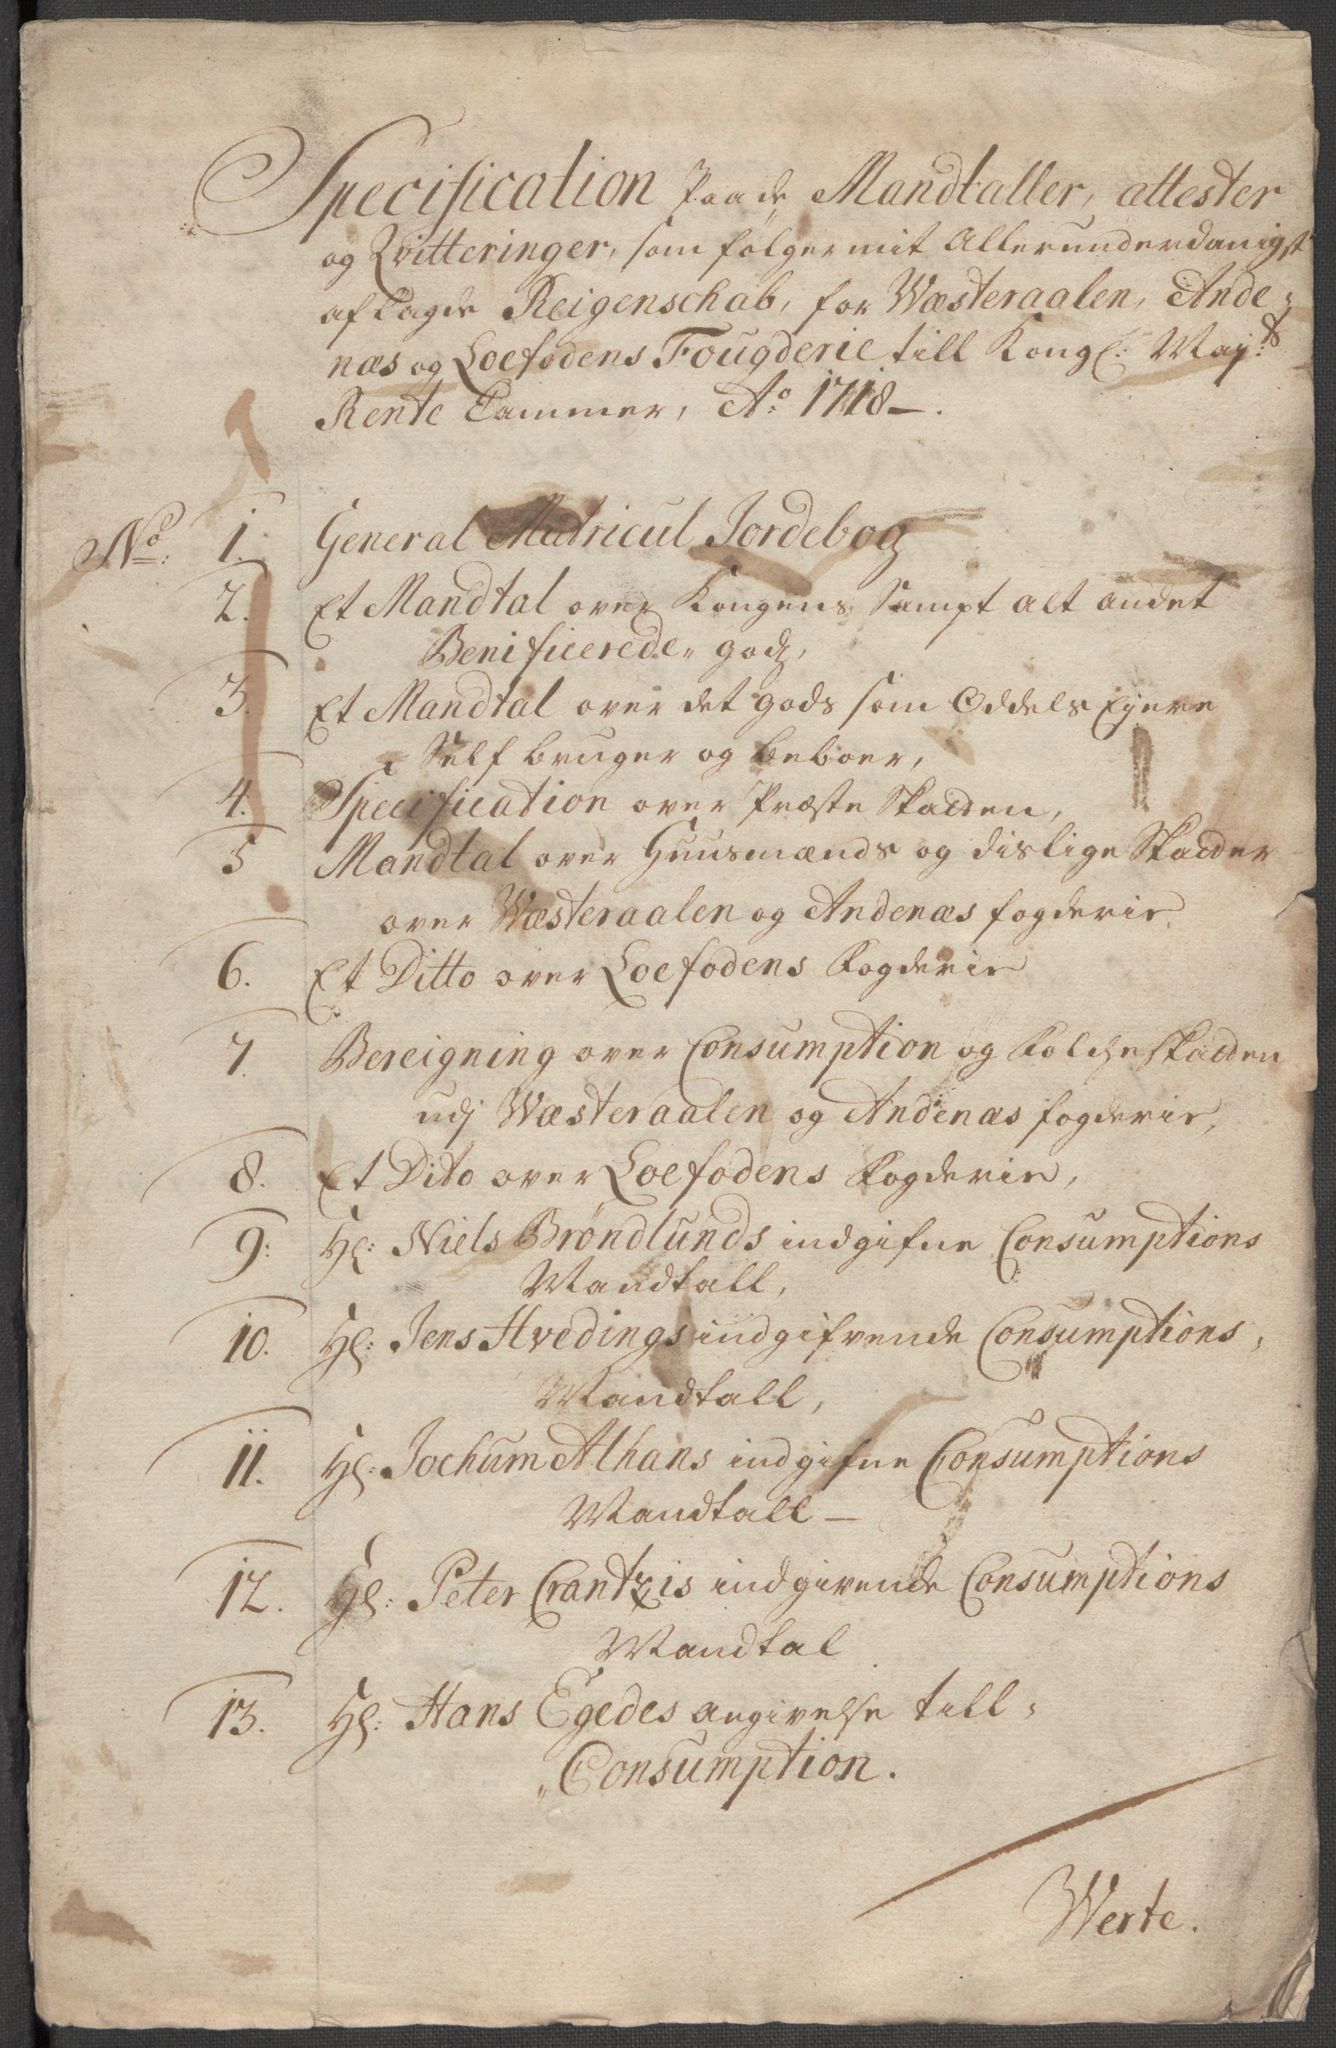 Specification Paa de Mandtaller, attester
og Qvitteringer, som følger mit Allerunderdanigst
aflagde Reigenschab, for Wæsteraalen, Ande=
næs og Loefodens Fougderie till Kongl: May:ts
Rente Cammer, Ao 1718 —.
No: 1. General Matricul Jordebog
2. Et Mandtal over Kongens Sampt alt andet
Benificerede godz,
3. Et Mandtal over det gods som Oddels Eyere
Self bruger og beboer,
4. Specification over Præste Skatten,
5 Mandtal over Huusmænds og dislige Skatter
over Wæsteraalen og Andenæs fogderie.
6. Et Ditto over Loefodens fogderie
7. Bereigning over Consumption og Folcheskatten
udj Wæsteraalen og Andenæs fogderie,
8. Et Dito over Loefodens fogderie,
9: Hl: Niels Bröndlunds indgifne Consumptions
Mandtall,
10. Hl: Jens Hvedings indgifvende Consumptions,
Mandtall,
11. Hl: Jochum Alhans indgifne Consumptions
Mandtall —
12. Hl: Peter Crantzis indgivende Consumptions
Mandtal
13. Hl: Hans Egedes angivelse till,
Consumption.
Werte.